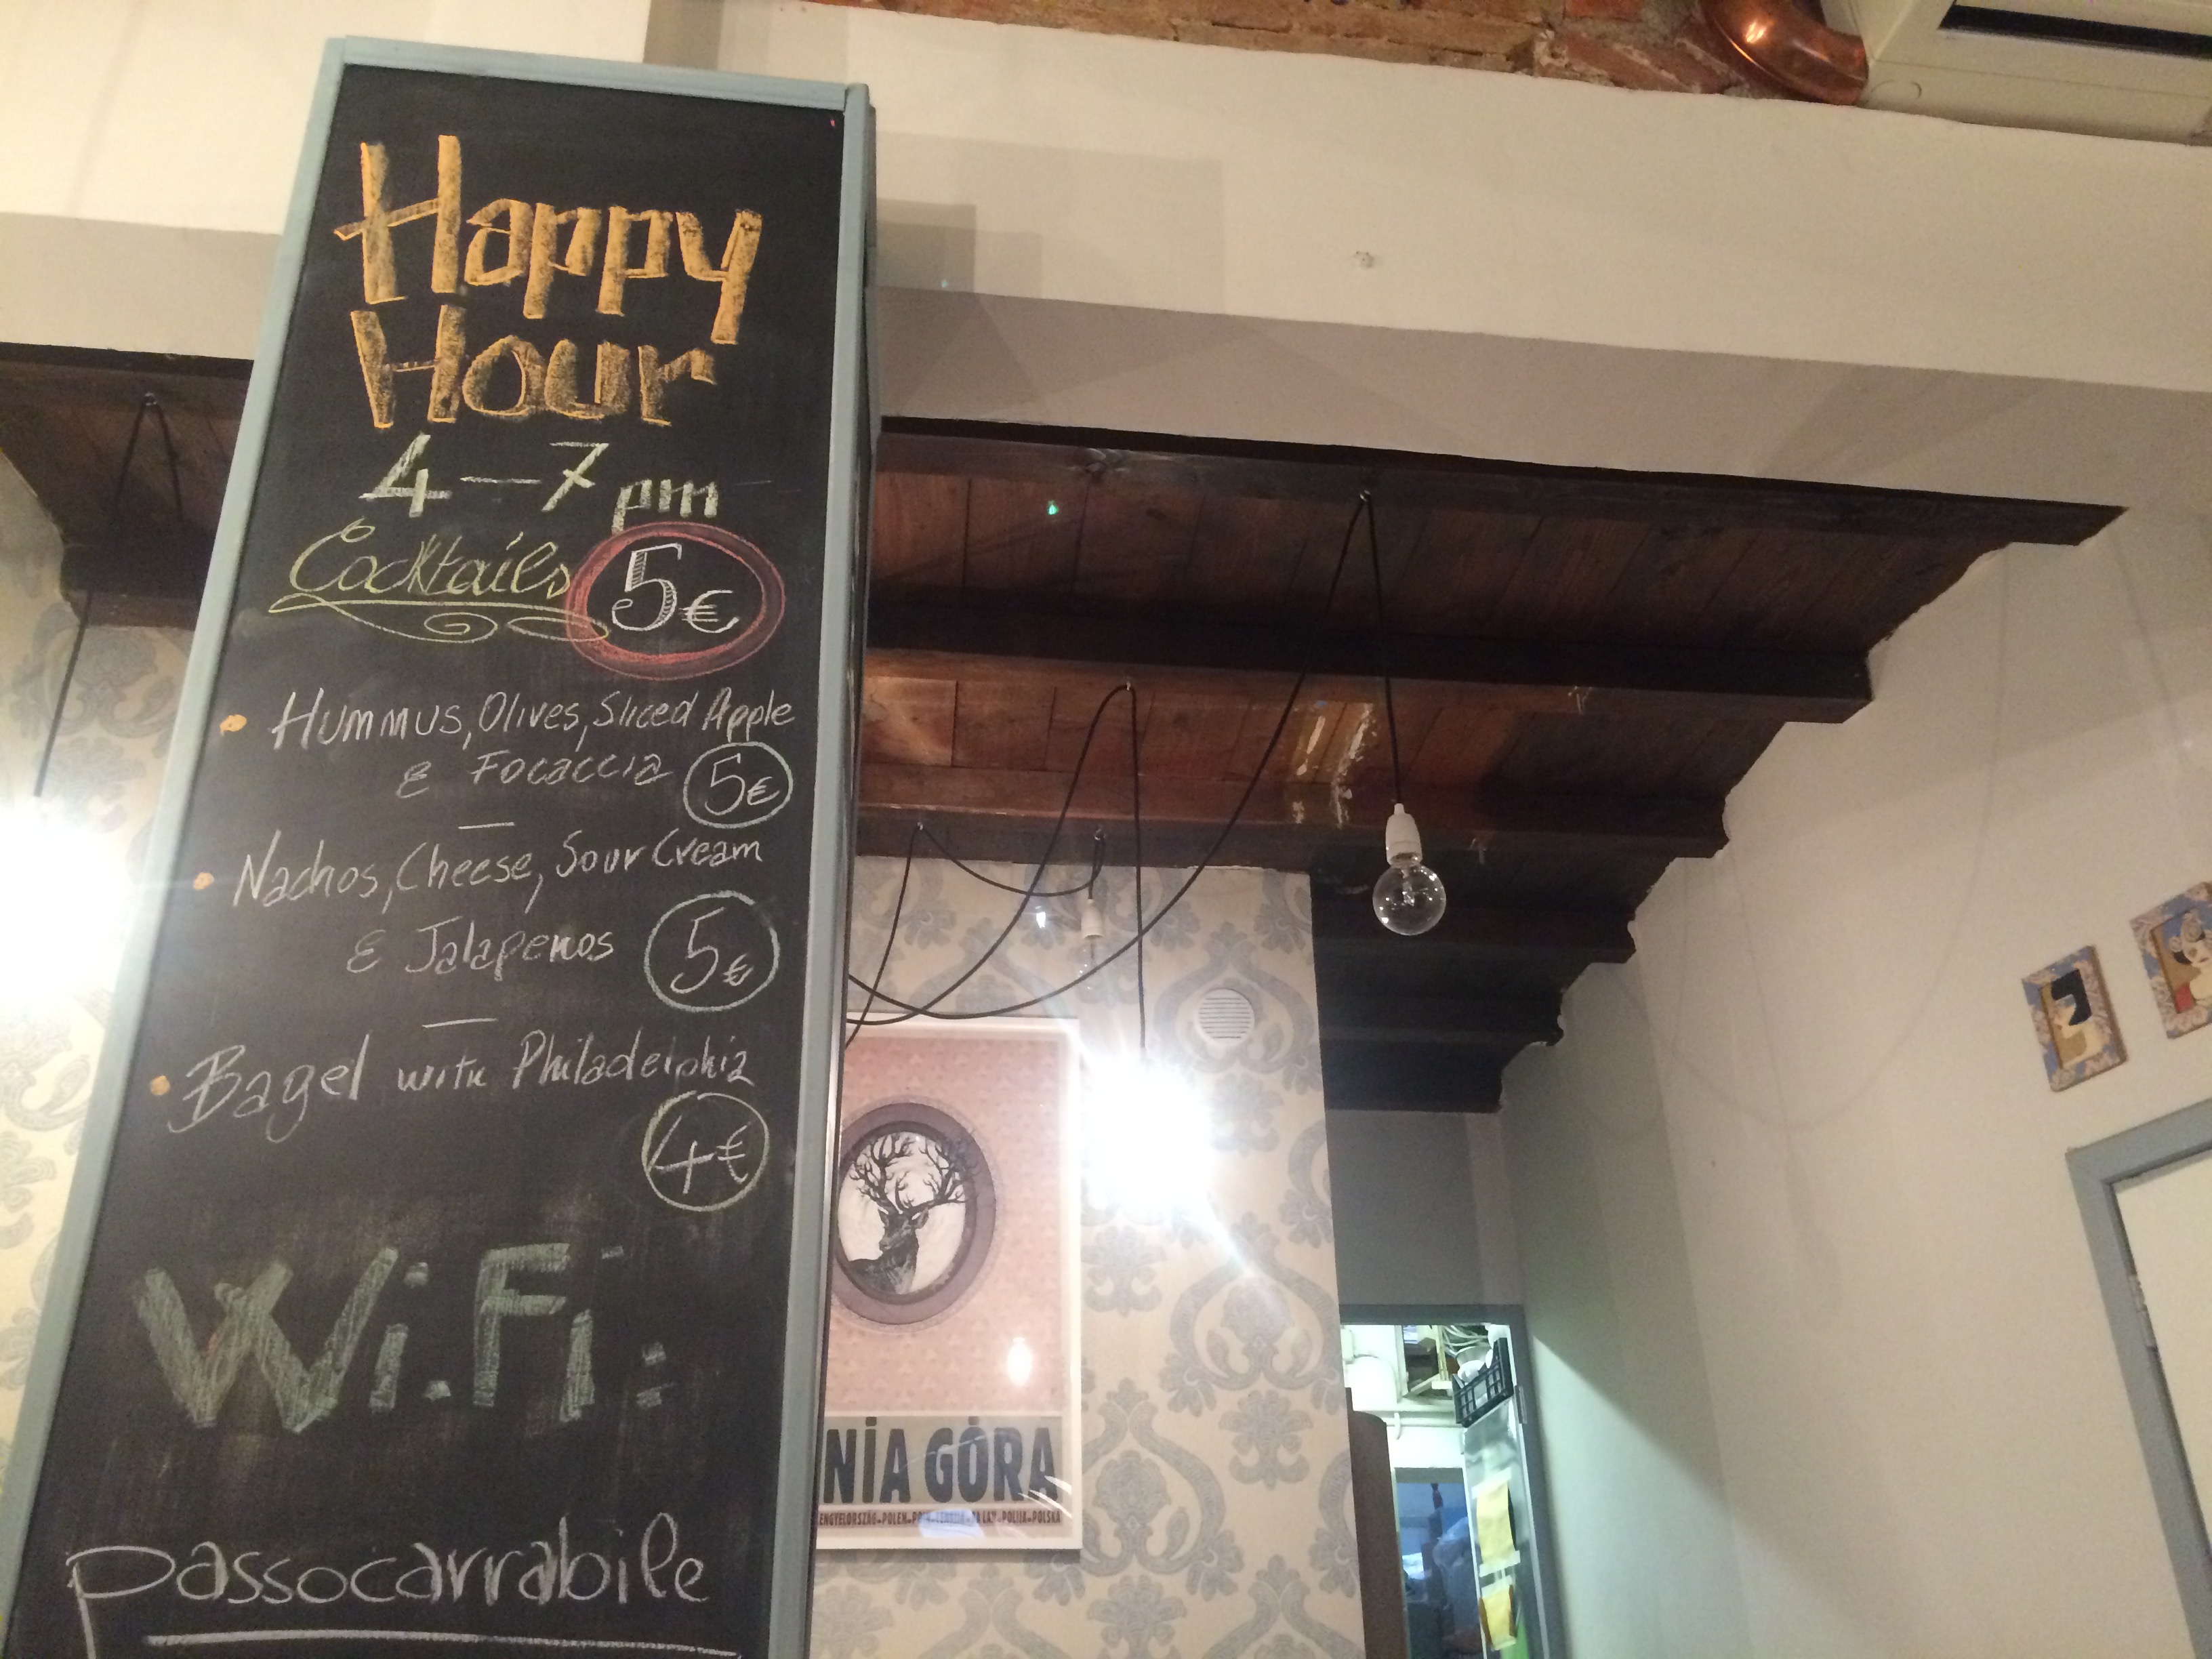 Happy
Hour
4—7 pm
Cocktails 5€
• Hummus, Olives, Sliced Apple
& Focaccia 5€
—
• Nachos, Cheese, Sour Cream
& Jalapenos 5€
—
• Bagel with Philadelphia
4€
Wi.Fi:
passocarrabile
NIA GÓRA
ENGYELORSZÁG-POLEN- POLIJA-POLSKA